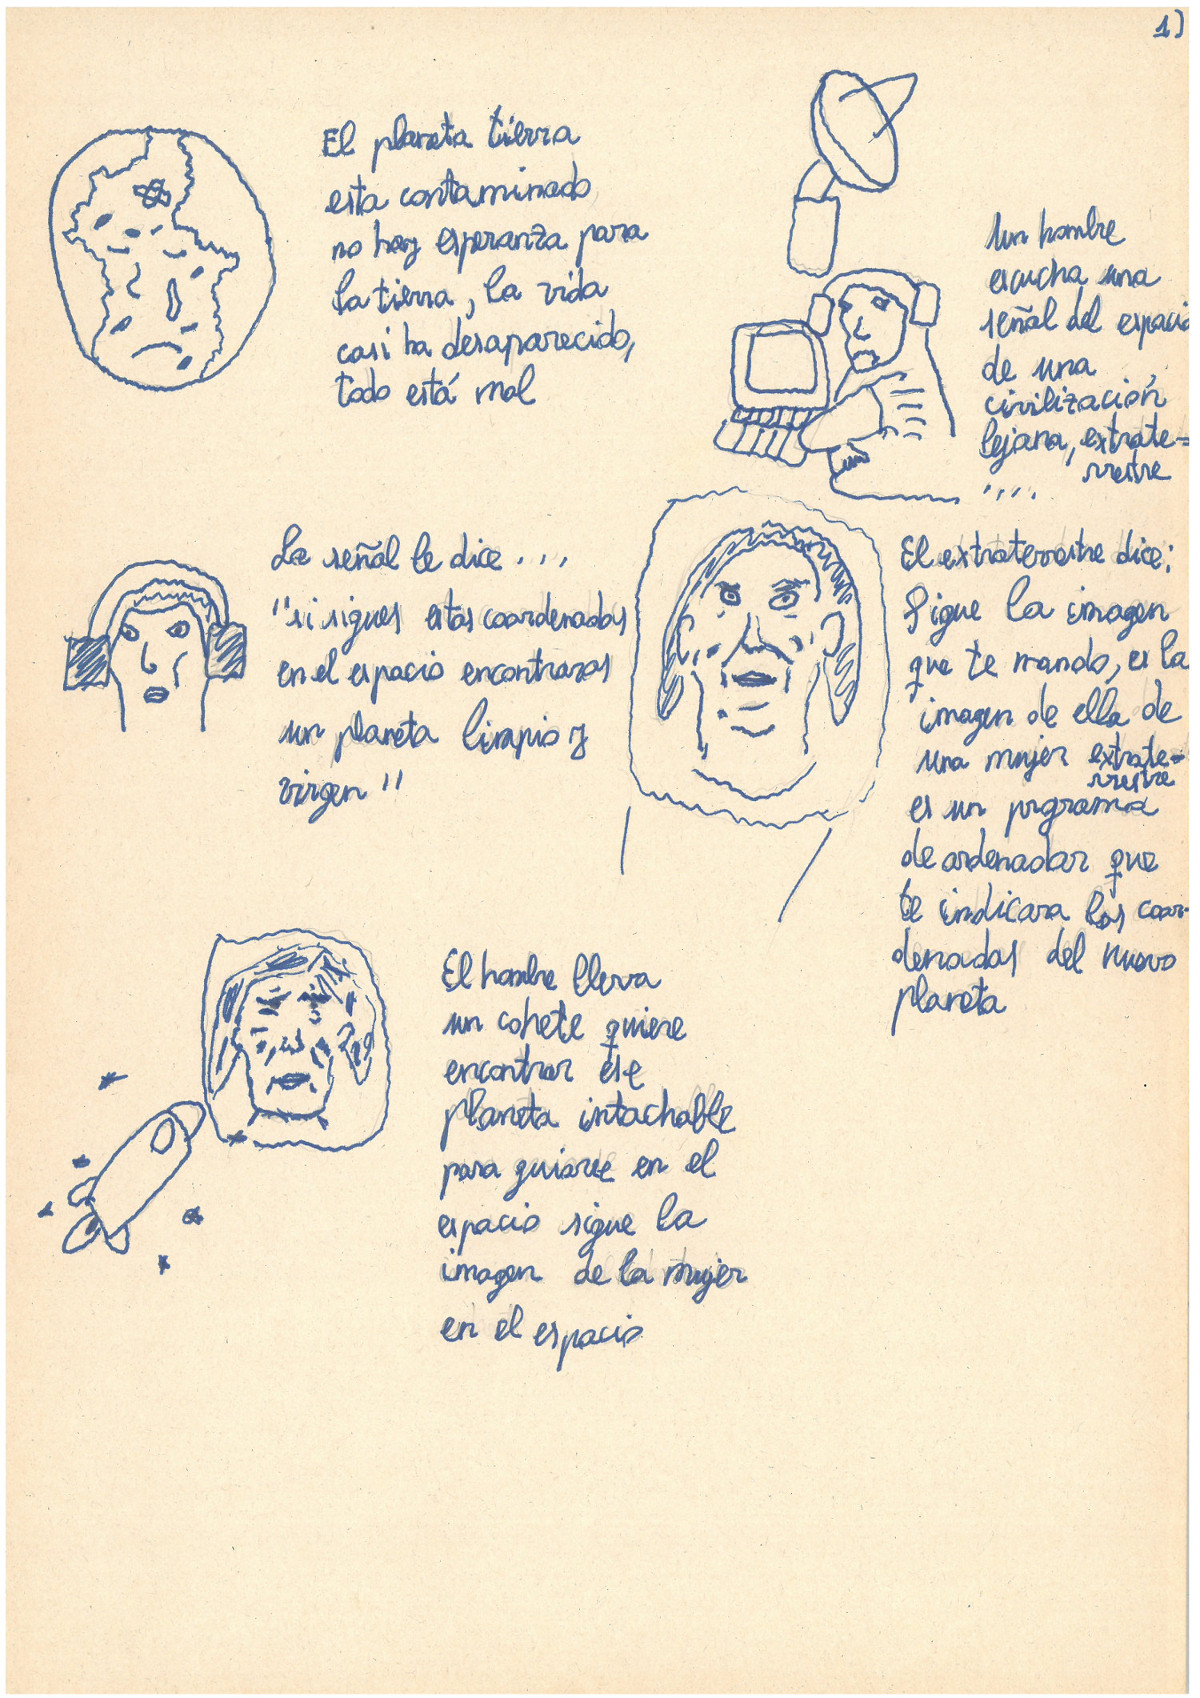 1)
El planeta tierra
esta contaminado
no hay esperanza para
la tierra, la vida
casi ha desaparecido,
todo está mal
Un hombre
escucha una
señal del espacio
de una
civilización
lejana, extrate=
rrestre
....
La señal le dice ...
"si sigues estas coordenadas
en el espacio encontraras
un planeta limpio y
virgen"
El extraterrestre dice:
Sigue la imagen
que te mando, es la
imagen de ella de
una mujer extrate=
rrestre
es un programa
de ordenador que
te indicara las coor-
denadas del nuevo
planeta
El hombre lleva
un cohete quiere
encontrar ese
planeta intachable
para guiarse en el
espacio sigue la
imagen de la mujer
en el espacio